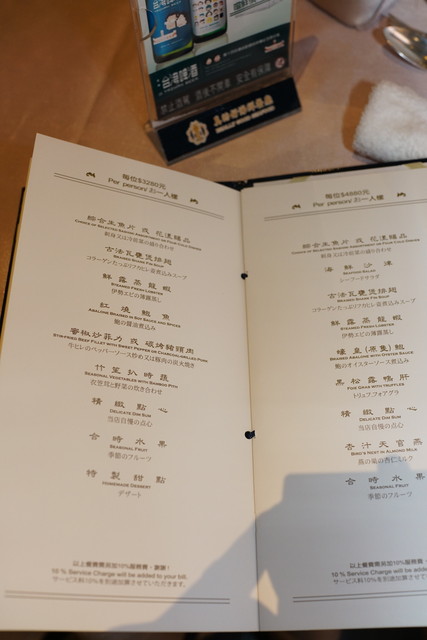 台灣啤酒
禁止酒駕 酒後不開車 安全有保障
每位$3280元
Per person/お一人様
綜合生魚片 或 花漾臻品
Choice of Selected Sashimi Assortment or Four Cold Dishes
刺身又は冷前菜の盛り合わせ
古法瓦甕煲排翅
Braised Shark Fin Soup
コラーゲンたっぷりフカヒレ壺煮込みスープ
鮮露蒸龍蝦
Steamed Fresh Lobster
伊勢エビの薄露蒸し
紅燒鮑魚
Abalone Braised in Soy Sauce and Spices
鮑の醤油煮込み
蜜椒炒菲力 或 碳烤豬頸肉
Stir-fried Beef Fillet with Sweet Pepper or Charcoal-grilled Pork
牛ヒレのペッパーソース炒め又は豚肉の炭火焼き
竹笙扒時蔬
Seasonal Vegetables with Bamboo Pith
衣笠茸と野菜の炊き合わせ
精緻點心
Delicate Dim Sum
当店自慢の点心
合時水果
Seasonal Fruit
季節のフルーツ
特製甜點
Homemade Dessert
デザート
以上餐費需另加10%服務費，謝謝！
10 % Service Charge will be added to your bill.
サービス料10%を別途加算させていただきます。
每位$4880元
Per person/お一人様
綜合生魚片 或 花漾臻品
Choice of Selected Sashimi Assortment or Four Cold Dishes
刺身又は冷前菜の盛り合わせ
海鮮沙律
Seafood Salad
シーフードサラダ
古法瓦甕煲排翅
Braised Shark Fin Soup
コラーゲンたっぷりフカヒレ壺煮込みスープ
鮮露蒸龍蝦
Steamed Fresh Lobster
伊勢エビの薄露蒸し
蠔皇(原隻)鮑
Braised Abalone with Oyster Sauce
鮑のオイスターソース煮込み
黑松露鴨肝
Foie Gras with Truffles
トリュフ,フォアグラ
精緻點心
Delicate Dim Sum
当店自慢の点心
杏汁天官燕
Bird's Nest in Almond Milk
燕の巣の杏仁ミルク
合時水果
Seasonal Fruit
季節のフルーツ
以上餐費需另加10%服務費
10 % Service Charge will be added to
サービス料10%を別途加算させてい